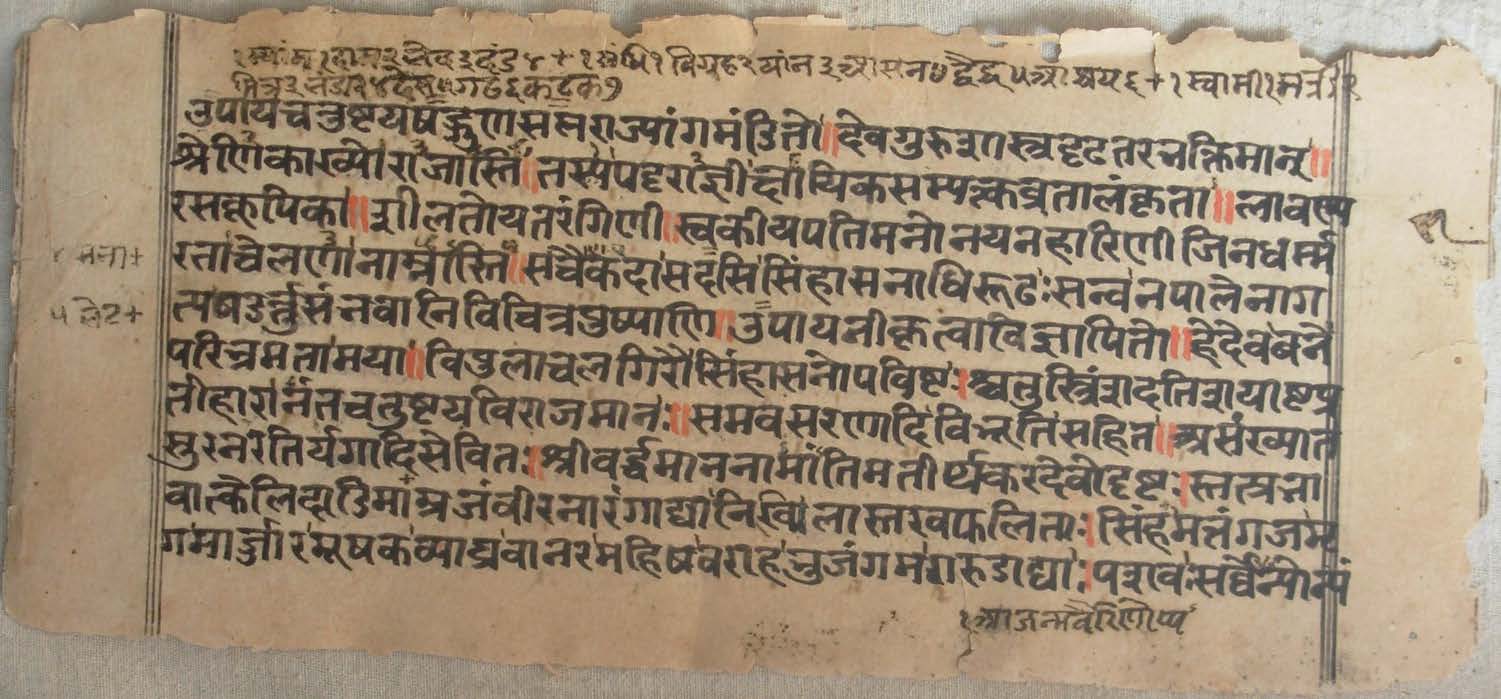 संधि १ विग्रह २ यांन ३ आसन ४ द्वैध ५ आश्रय ६ + १ स्वामी १
उपायचतुष्टयषड्गुणसप्तराज्यांगमंडितो॥देवगुरुशास्त्रदृढतरभक्तिमान्॥
श्रेणिकाख्यो राजास्ति॥तस्य पट्टराज्ञी क्षायिकसम्यक्त्कव्रतालंकृता॥लावण्य
रसकूपिका॥शीलतोयतरंगिणी॥स्वकीयपतिमनोनयनहारिणी जिनधर्म्म
रता चेलणा नाम्नास्ति॥स चैकदा सदसि सिंहासनाधिरूढः सन् वनपालेनाग
त्य षडर्त्तुसंभवानि विचित्रपुष्पाणि॥उपायनीकृत्वा विज्ञापितो॥हे देव वने
परिभ्रमता मया॥विपुलाचलगिरौ सिंहासनोपविष्टः।श्चतुस्त्रिंशदतिशयाष्टप्र
तीहारानंतचतुष्टयविराजमानः॥समवसरणादिविभूतिसहित॥असंख्यात
सुरनरतिर्यगादिसेवितः॥श्रीवर्द्धमाननामांतिमतीर्थकरदेवो दृष्टः।स्तत्प्रभा
वात्केलिदाडिमाम्रजंवीरनारंगाद्या निखिलास्तरवफलिताः।सिंहमत्तंगजमृ
गमार्ज्जारमूषकव्याघ्रवानरमहिषवराहभुजंगमगरुडाद्याः।पशवः सर्वेन्योन्यं
१ आजन्मवैरिणोप्य